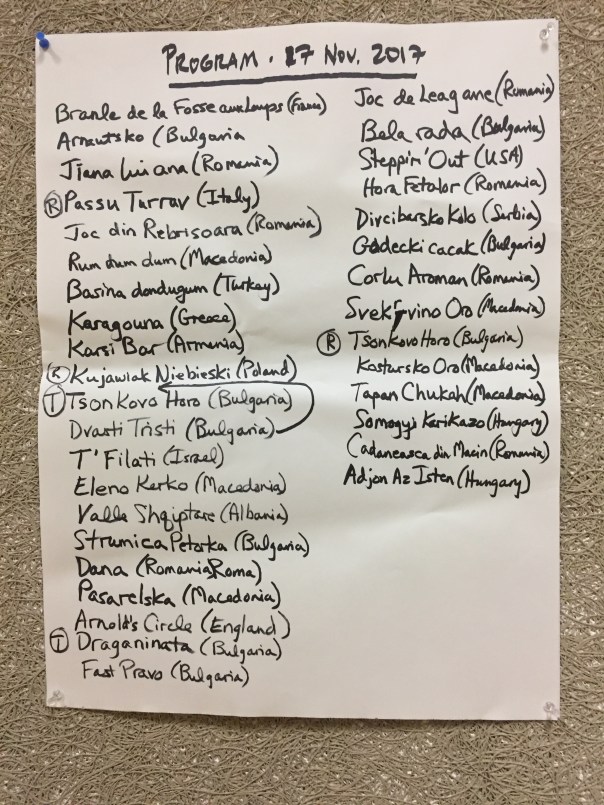 PROGRAM . 17 Nov. 2017
Branle de la Fosse aux Loups (France)
Arnautsko (Bulgaria
Jiana Luiana (Romania)
(R) Passu Turrav (Italy)
Joc din Rebrisoara (Romania)
Rum dum dum (Macedonia)
Basina dondugum (Turkey)
Karagouna (Greece)
Karsi Bar (Armenia)
(R) Kujawiak Niebieski (Poland)
(T) Tsonkovo Horo (Bulgaria)
Dvasti Tristi (Bulgaria)
T'Filati (Israel)
Eleno Kerko (Macedonia)
Valle Shqiptare (Albania)
Strumica Petorka (Bulgaria)
Dana (Romania, Roma)
Pasarelska (Macedonia)
Arnold's Circle (England)
(T) Draganinata (Bulgaria)
Fast Pravo (Bulgaria)
Joc de Leagane (Rumania)
Bela rada (Bulgaria)
Steppin' Out (USA)
Hora Fetelor (Romania)
Divcibarsko Kolo (Serbia)
Godecki cacak (Bulgaria)
Corlu Aroman (Romania)
Svekrvino Oro (Macedonia)
(R) Tsonkovo Horo (Bulgaria)
Kostursko Oro (Macedonia)
Tapan Chukah (Macedonia)
Somogyi Karikazo (Hungary)
Cadaneasca din Macin (Romania)
Adjon Az Isten (Hungary)